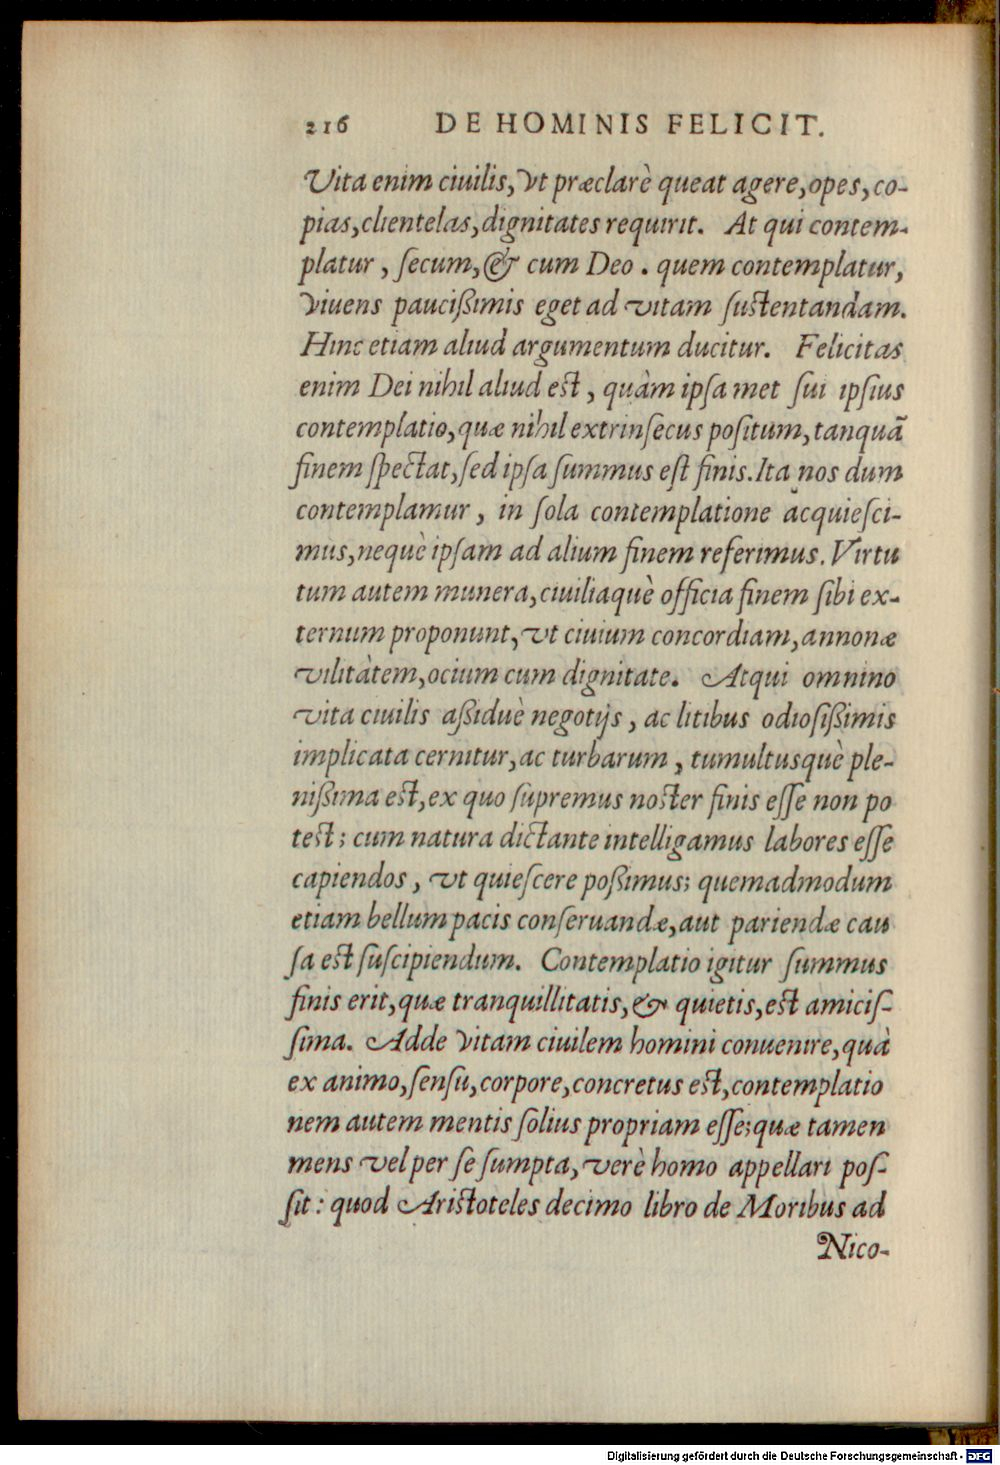 216 DE HOMINIS FELICIT.
Vita enim ciuilis, vt præclarè queat agere, opes, co-
pias, clientelas, dignitates requirit. At qui contem-
platur, secum, & cum Deo. quem contemplatur,
viuens paucißimis eget ad vitam sustentandam.
Hinc etiam aliud argumentum ducitur. Felicitas
enim Dei nihil aliud est, quàm ipsa met sui ipsius
contemplatio, quæ nihil extrinsecus positum, tanquã
finem spectat, sed ipsa summus est finis. Ita nos dum
contemplamur, in sola contemplatione acquiesci-
mus, nequè ipsam ad alium finem referimus. Virtu
tum autem munera, ciuiliaquè officia finem sibi ex-
ternum proponunt, vt ciuium concordiam, annonæ
vilitàtem, ocium cum dignitate. Atqui omnino
vita ciuilis aßiduè negotijs, ac litibus odiosißimis
implicata cernitur, ac turbarum, tumultusquè ple-
nißima est, ex quo supremus noster finis esse non po
test; cum natura dictante intelligamus labores esse
capiendos, vt quiescere poßimus; quemadmodum
etiam bellum pacis conseruandæ, aut pariendæ cau
sa est suscipiendum. Contemplatio igitur summus
finis erit, quæ tranquillitatis, & quietis, est amicis-
sima. Adde vitam ciuilem homini conuenire, quà
ex animo, sensu, corpore, concretus est, contemplatio
nem autem mentis solius propriam esse; quæ tamen
mens vel per se sumpta, verè homo appellari pos-
sit: quod Aristoteles decimo libro de Moribus ad
Nico-
Digitalisierung gefördert durch die Deutsche Forschungsgemeinschaft - DFG